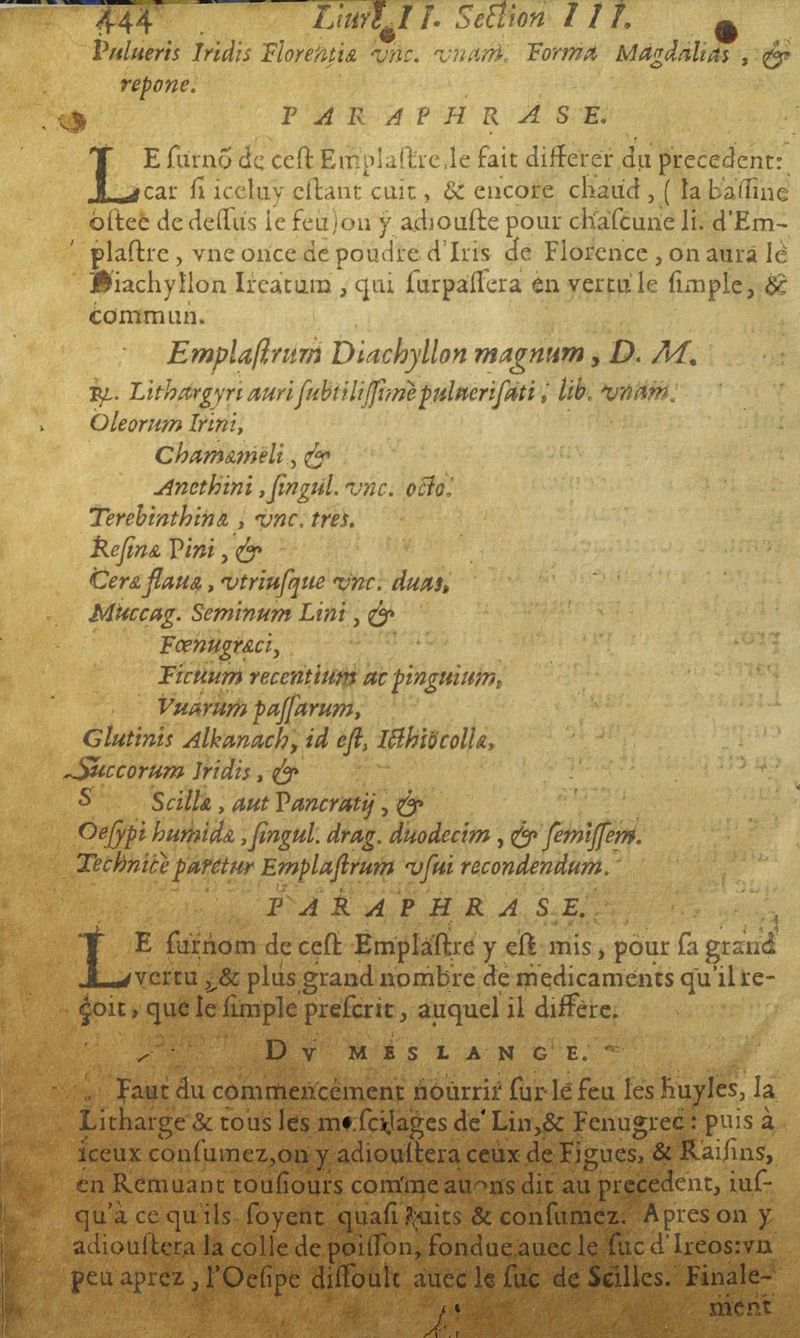 444 Liure II. Section III.
Pulueris Iridis Florentiæ vnc. vnam. Forma Magdalias, &
repone.
PARAPHRASE.
LE furnõ de cest Emplastre le fait differer du precedent:
car si iceluy estant cuit, & encore chaud, (la bassine
ostee de dessus le feu) on y adiouste pour chascune li. d'Em-
plastre, vne once de poudre d'Iris de Florence, on aura le
Diachyllon Ireatum, qui surpassera en vertu le simple, &
commun.
Emplastrum Diachyllon magnum, D. M.
℞. Lithargyri auri subtilissimè puluerisati, lib. vnam.
Oleorum Irini,
Chamæmeli, &
Anethini, singul. vnc. octo.
Terebinthinæ, vnc. tres.
Resinæ Pini, &
Ceræ flauæ, vtriusque vnc. duas,
Muccag. Seminum Lini, &
Fœnugræci,
Ficuum recentium ac pinguium,
Vuarum passarum,
Glutinis Alkanach, id est, Icthiocollæ,
Succorum Iridis, &
S Scillæ, aut Pancratij, &
Oesypi humidæ, singul. drag. duodecim, & semissem.
Technicè paretur Emplastrum vsui recondendum.
PARAPHRASE.
LE surnom de cest Emplastre y est mis, pour sa grand
vertu, & plus grand nombre de medicaments qu'il re-
çoit, que le simple prescrit, auquel il differe.
DV MESLANGE.
Faut du commencement nourrir sur le feu les huyles, la
Litharge & tous les muscilages de Lin, & Fenugrec: puis à
iceux consumez, on y adioustera ceux de Figues, & Raisins,
en Remuant tousiours comme auons dit au precedent, ius-
qu'à ce qu'ils soyent quasi cuits & consumez. Apres on y
adioustera la colle de poisson, fondue auec le suc d'Ireos: vn
peu aprez, l'Oesipe dissoult auec le suc de Scilles. Finale-
ment